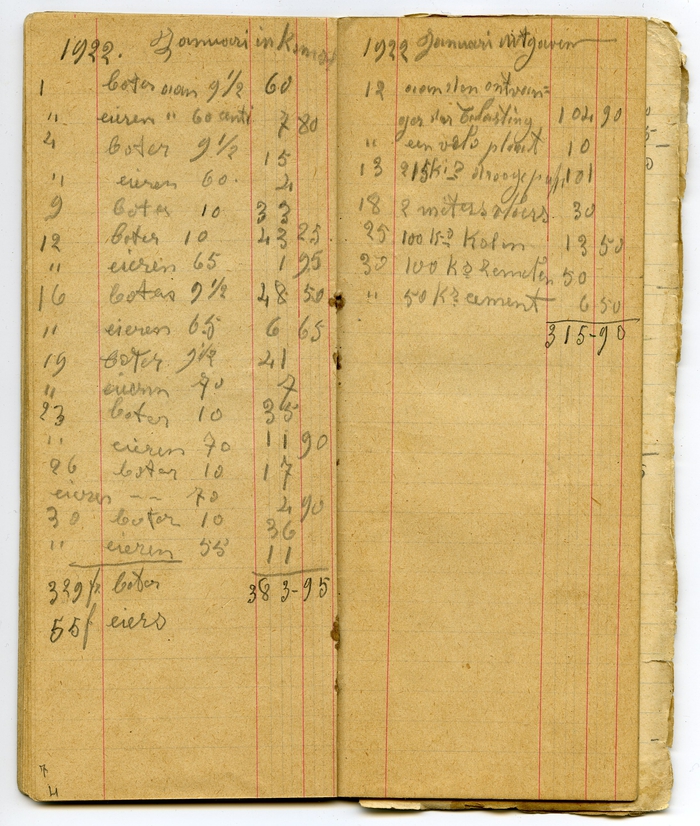 1922. Januari inkomst
1 boter aan 9 1/2 60
" eieren " 60 centi 7 80
4 boter 9 1/2 15
" eieren 60. 4
9 boter 10 33
12 boter 10 43 25
" eieren 65 1 95
16 boter 9 1/2 48 50
" eieren 65 6 65
19 boter 9 1/2 41
" eieren 70 7
23 boter 10 35
" eieren 70 11 90
26 boter 10 17
eieren -- 70 4 90
30 boter 10 36
" eieren 55 11
339 f boter 383-95
55 f eiers
1922 Januari uitgaven
12 aan den ontvan=
ger der belasting 104 90
" een velo plaat 10
13 215 kg droogepulp 101
18 2 meters vloers 30
25 100 Kg Kolen 13 50
30 100 Kg zemelen 50
" 50 Kg cement 6 50
315-90